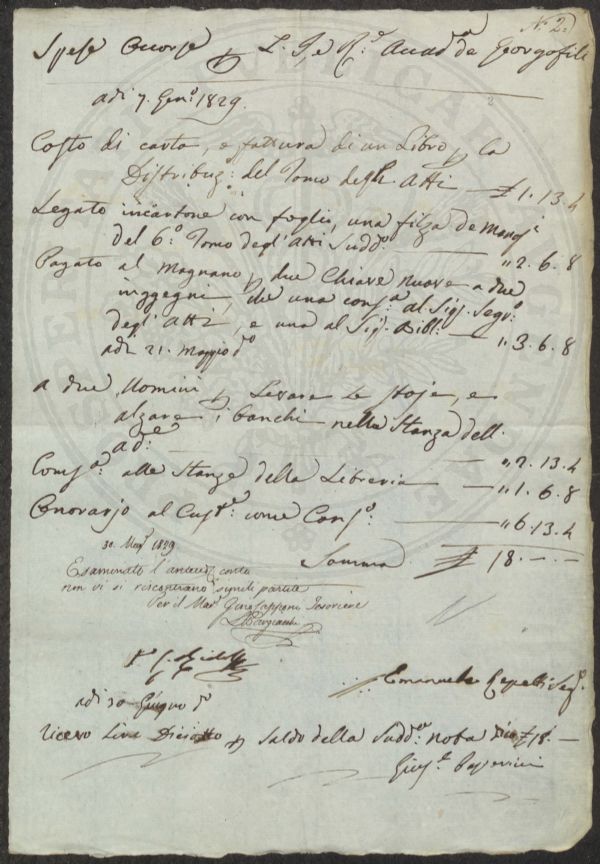 N. 2.
Spese Occorse p L. I, e R.e Accad.a de Georgofili
adi 7. Gen.o 1829.
Costo di carta, e fattura di un Libro p la
Distribuz.e del Tomo degli Atti — £ 1. 13. 4
Legato incartone con foglio, una filza de Manos.i
del 6.o Tomo degl'Atti Sudd.o — " 2. 6. 8
Pagato al Magnano p due Chiave nuove a due
inggegni, che una cons.a al Sig. Segr.o
degl'Atti, e una al Sig. Bibl. — " 3. 6. 8
adi 21. Maggio d.o
a due Uomini p Levare Le Stoje, e
alzare i banchi nella Stanza dell.
ad.e — " 2. 13. 4
Cons.a alle Stanze della Libreria — " 1. 6. 8
Onorario al Cust.e come Cons.o — " 6. 13. 4
Somma £ 18. — . —
30. Mag. 1829
Esaminato l'anteced. conto
non vi si riscontrano simili partite
Per il Mar. Tesoriere
Emanuele Repetti Seg.
adi 30 Giugno d.o
Ricevo Lire Diciotto p Saldo della Sudd.a nota £ 18. —
Gius.e